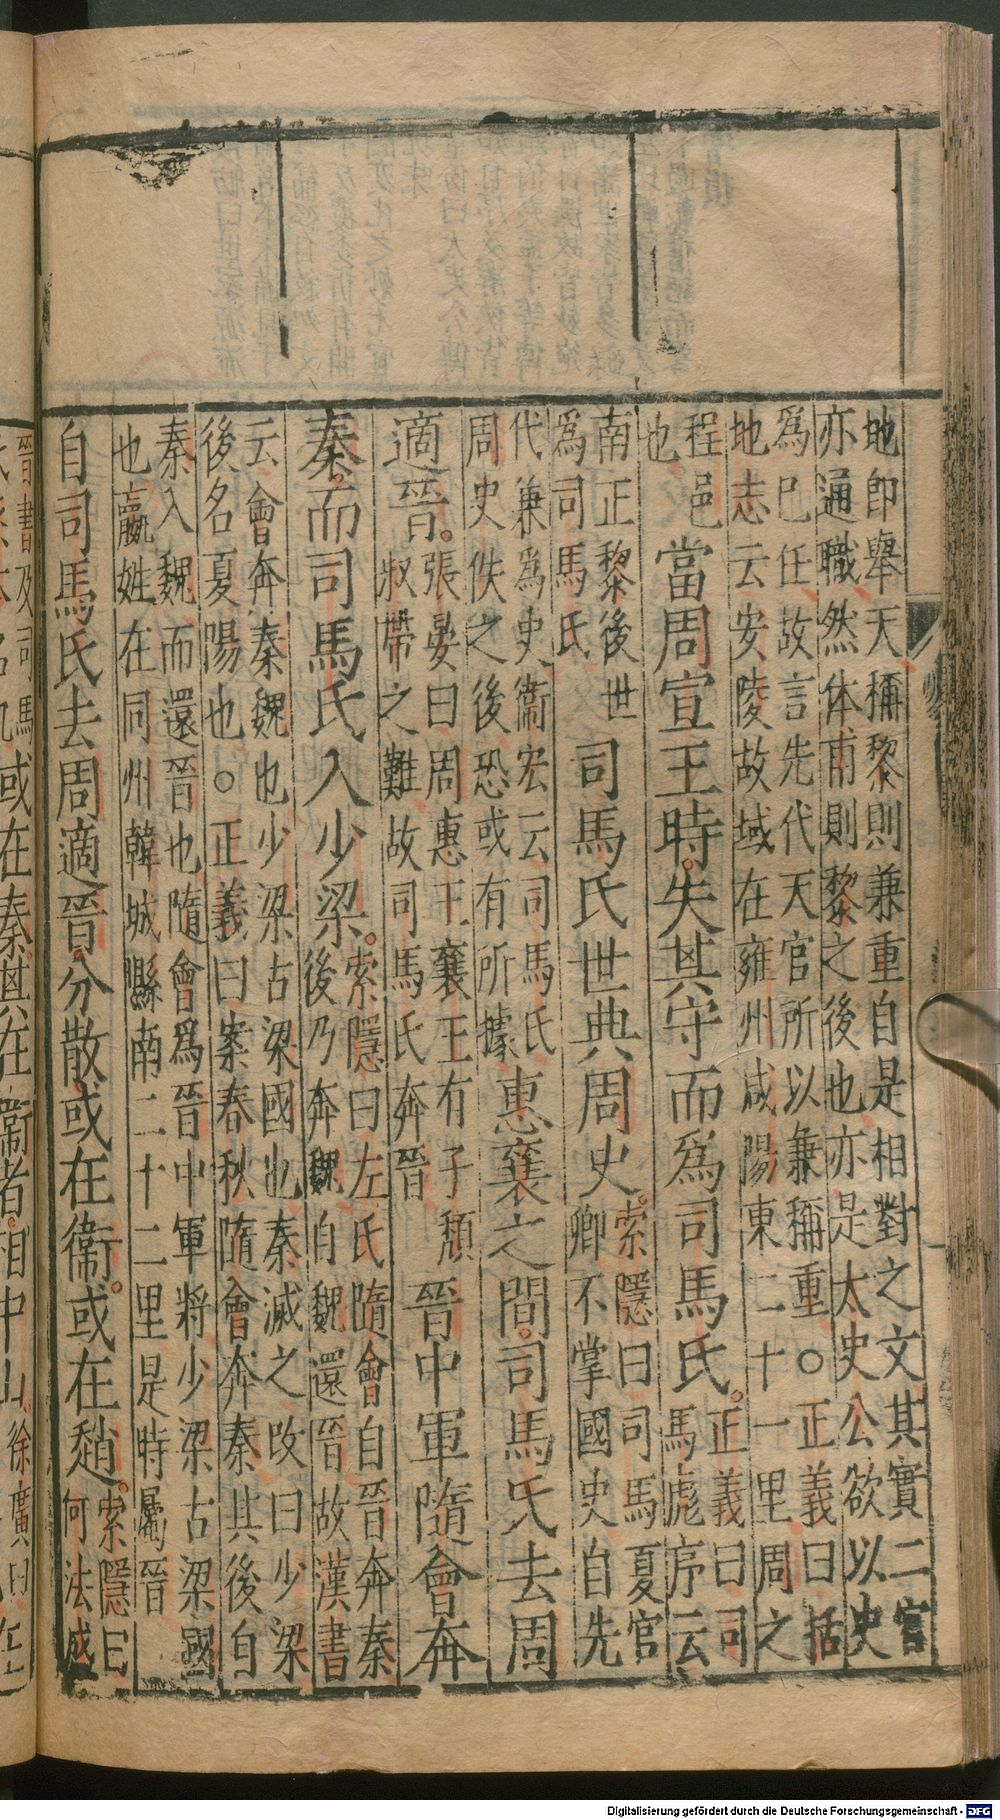 地即舉天稱黎則兼重自是相對之文其實二官
亦通職然体甫則黎之後也亦是太史公欲以史
爲巳任故言先代天官所以兼稱重○正義曰括
地志云安陵故城在雍州咸陽東二十一里周之
程邑
也
當周宣王時。失其守而爲司馬氏。
正義曰司
馬彪序云
南正黎後世
爲司馬氏
司馬氏世典周史。
索隱曰司馬夏官
卿不掌國史自先
代兼爲史衞宏云司馬氏
周史佚之後恐或有所據
惠襄之間。司馬氏去周
適晉。
張晏曰周惠王襄王有子頹
叔帶之難故司馬氏奔晉
晉中軍隨會奔
秦。而司馬氏入少梁。
索隱曰左氏隨會自晉奔秦
後乃奔魏自魏還晉故漢書
云會奔秦魏也少梁古梁國也秦滅之改曰少梁
後名夏陽也○正義曰案春秋隨會奔秦其後自
秦入魏而還晉也隨會爲晉中軍將少梁古梁國
也嬴姓在同州韓城縣南二十二里是時屬晉
自司馬氏去周適晉。分散或在衞。或在趙。
索隱曰
何法盛
晉書及司馬
或在秦。其在衞者。相中山
徐廣曰
Digitalisierung gefördert durch die Deutsche Forschungsgemeinschaft - DFG